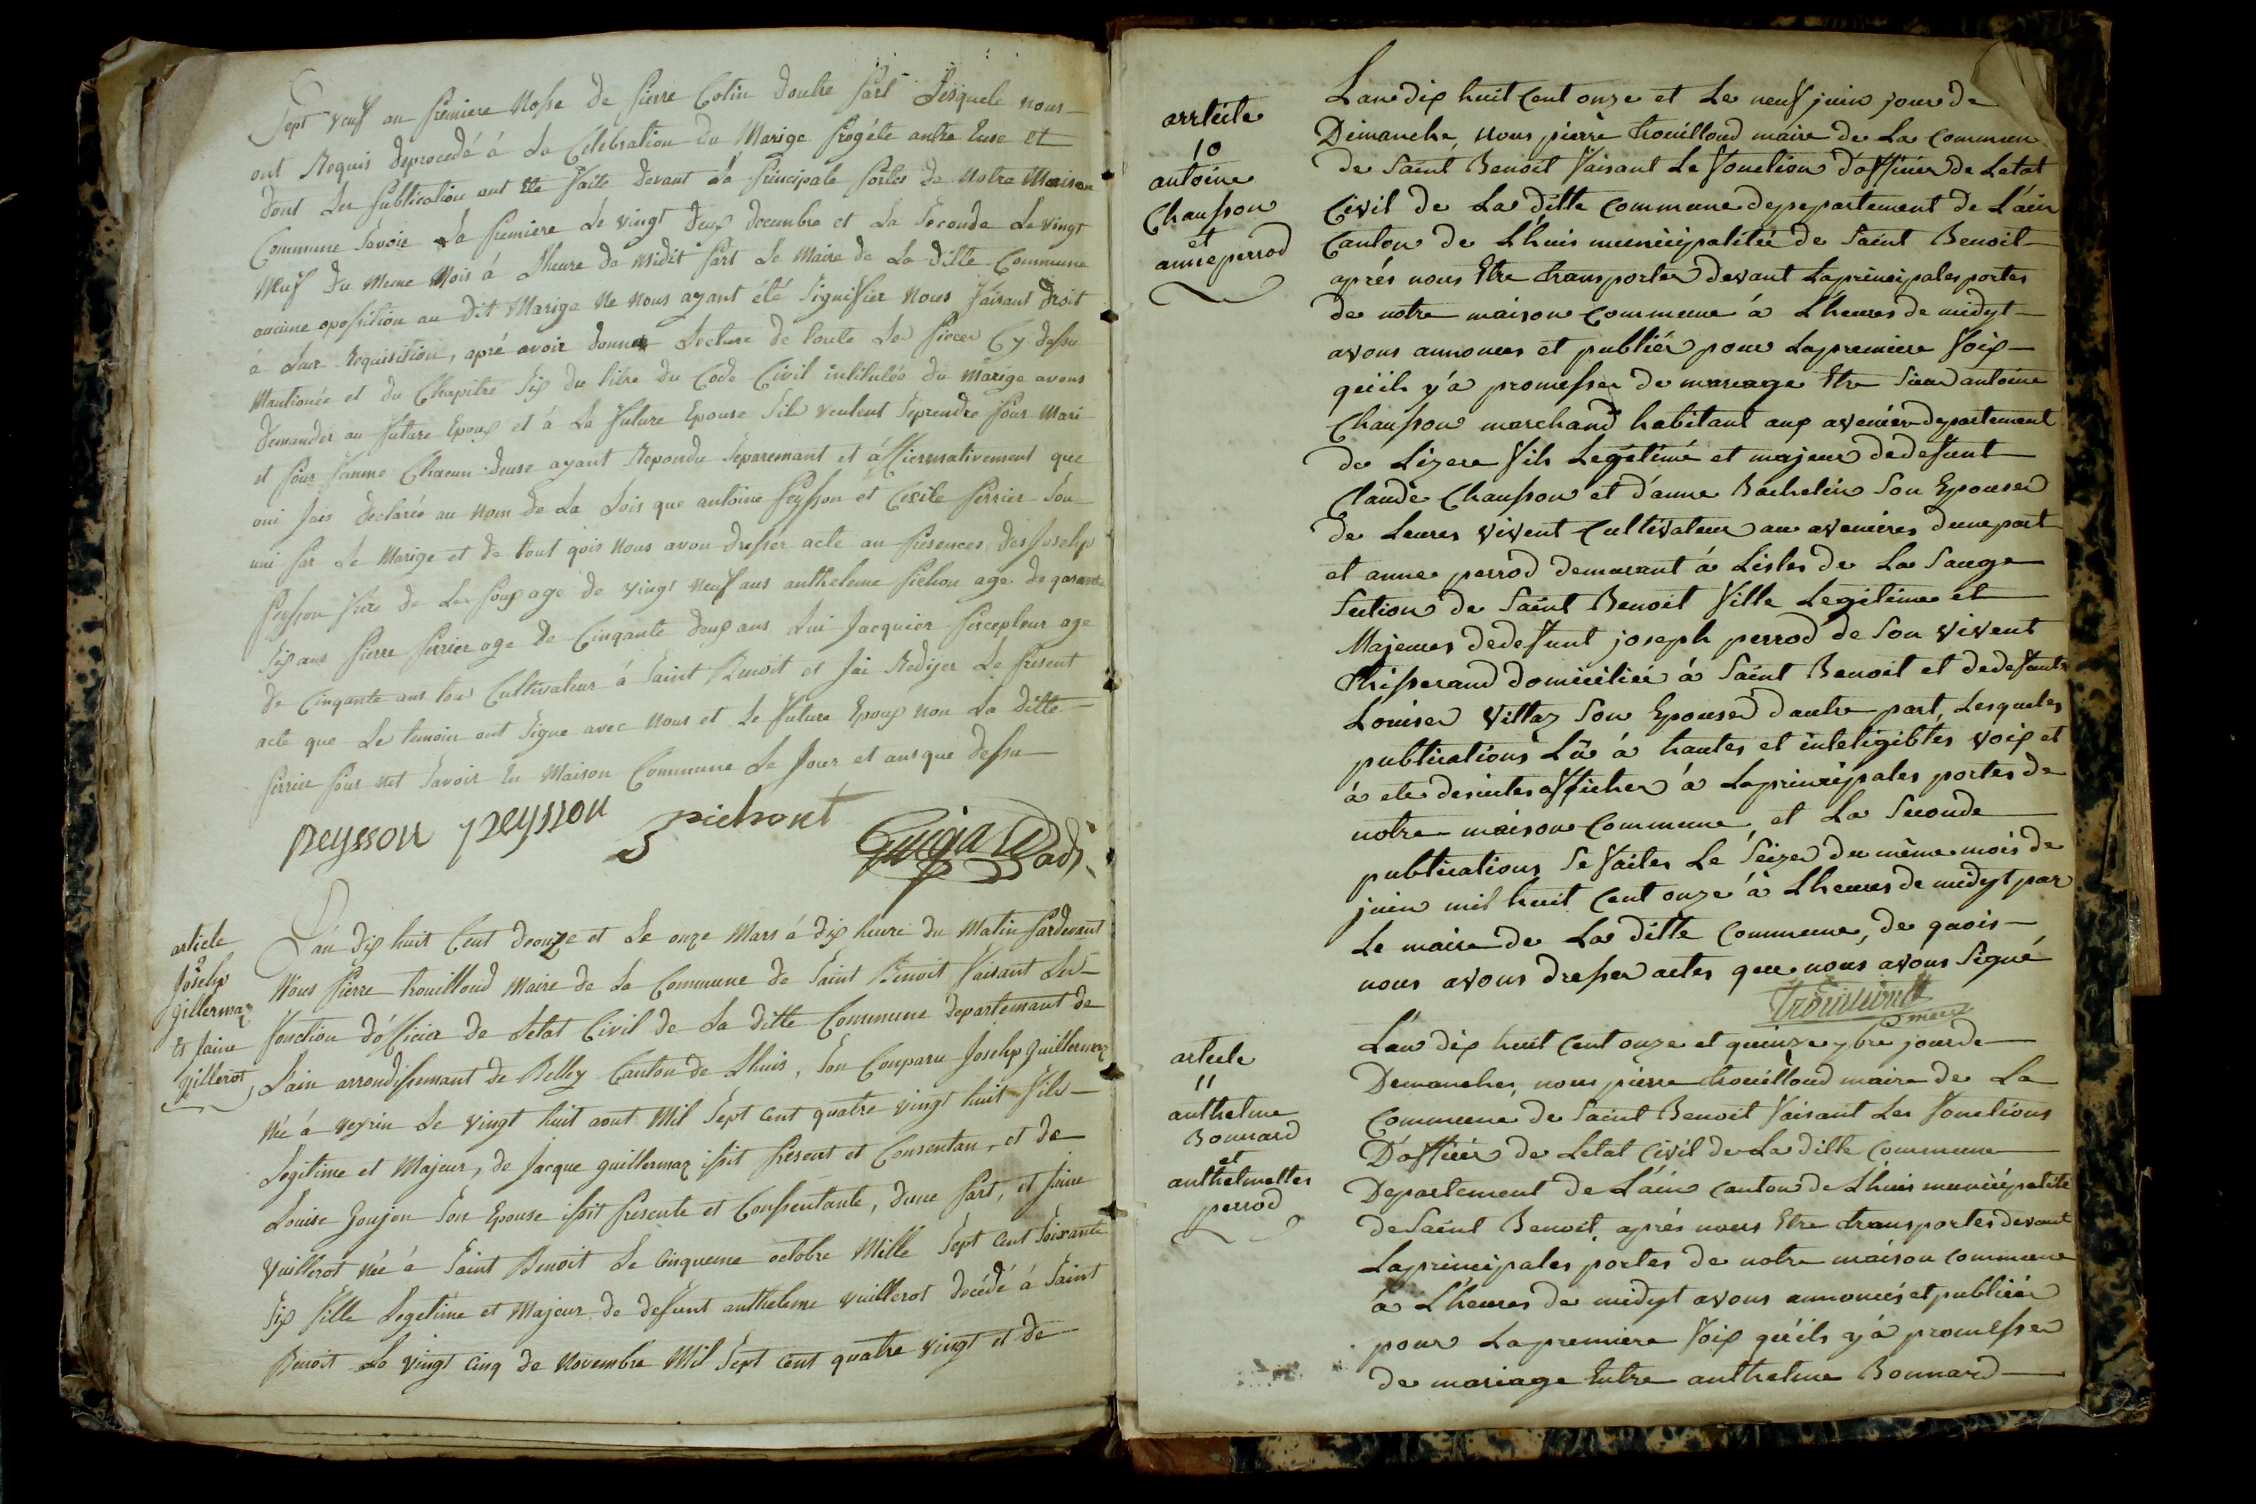 Sept veuf an premiere Nosse de pierre Colin doutre part Lesquele nous
ont Requis deprocedé à La Celebration du Marige progéte antre Euse et
dont Les publication ont Ete faite devant La principale portes de Notre Maison
Commune Savoir La premiere Le vingt deux decembre et La Seconde Le vingt
Neuf du meme Mois à Lheure de Midit part Le Maire de La ditte Commune
aucune oposition au dit Marige Ne Nous ayant été Signifier Nous faisant droit
à Leur Requisition, apré avoir donner Lecture de toute Les pieces Cy dessu
Mantionée et du Chapitre Six du titre du Code Civil intitulée du Marige avons
demander au future Epoux et à La future Epouse Sils veulent Seprendre pour Mari
et pour fanme Chacun deuse ayant Repondu Separemant et affirmativement que
oui fais declarée au Nom de La Lois que antoine peysson et Cecile perrier Son
uni par Le Marige et de tout qois Nous avon dresser acte au presences des Joselp
peysson frere de Les poux age de vingt Neuf ans anthelme pichon age de qarante
Six ans pierre perrier age de Cinqante deux ans Lui Jacquier percepteur age
de Cinqante ans tous Cultivateur à Saint Benoit et Jai Rediger Le present
acte que Le temoin ont Signe avec Nous et Le future Epoux Non La ditte
perrier pour Net Savoir En Maison Commune Le Jour et ans que dessu
peysson peysson pichont
article
9
Joselp
gillermaz
Et Jaine
gillerot
Lan dix huit Cent donze et Le onze Mars à dix heure du Matin pardevant
Nous pierre trouilloud Maire de La Commune de Saint Benoit faisant Les
fonction d'officier de Letat Civil de La ditte Commune departemant de
Lain arrondissemant de Belley Canton de Lhuis, Son Conparu Joselp guillermaz
Née à veyrin Le vingt huit aout Mil Sept cent quatre vingt huit fils
Legitime et Majeur, de Jacque guillermaz issit present et Consentan, et de
Louise Goujon Son Epouse issit presente et Conssentante, dune part, et Jaine
vuillerot née à Saint Benoit Le cinqueme octobre Mille Sept cent Soixante
Six fille Legetime et Majeur de defunt anthelme vuillerot decédé à Saint
Benoit Le vingt cinq de Novembre Mil Sept cent quatre vingt et de
arrteicle
10
antoine
Chausson
et
anne perrod
Lan dix huit Cent onze et Le neuf juin jour de
Dimanche, nous pierre trouilloud maire de La commun
de Saint Benoit faisant Le fonction d'afficier de Letat
Civil de La ditte commune depepartement de L'ain
Canton de L'huis municipalitée de Saint Benoit
aprés nous Etre transporter devant Laprincipales portes
de notre maison commune à L'heures de midyt
avons annoncer et publiér pour Lapremiere foix
qu'ils y'a promesser de mareage Etre Sieur antoine
Chausson marchand habitant aux avenier departement
de Lizere fils Legétimé et majeur dedefunt
Claude Chausson et d'anne Bachelin Son Epouser
de Leures vivent Cultivateur au avenieres dunepart
et anne perrod demeurant à Lisles de La Sauge
Section de Saint Benoit fille Legitime et
Majeures dedefunt joseph perrod de Son vivent
thisserand domiciliée à Saint Benoit et dedefante
Louiser villaz Son Epouser dautre part, Lesqueles
publications Lû à hautes et inteligibles voix et
à ete desuites afficher à Laprincipales portes de
notre maison Commune, et La Seconde
publications Se faites Le Seizer du même mois de
juin mil huit Cent onze à L'heures de midyt par
Le maire de La ditte commune, de quois
nous avons dresser actes que nous avons Signé
trouilloud
maire
arteile
11
anthelme
Bonnard
et
anthelmettes
perrod
L'an dix huit Cent onze et quinze 7bre jour de
Demanches, nous pierre trouilloud maire de La
commune de Saint Benoit faisant Les fonctions
D'afficiér de Letat Civil de La ditte commune
Departement de L'ain canton de L'huis municipalité
de Saint Benoit, aprés nous Etre transportes devant
Laprincipales portes de notre maison commune
à L'heures de midyt avons annoncés et publiér
pour Lapremiere foix qu'ils y'à promesser
de mariage Entre anthelme Bonnard